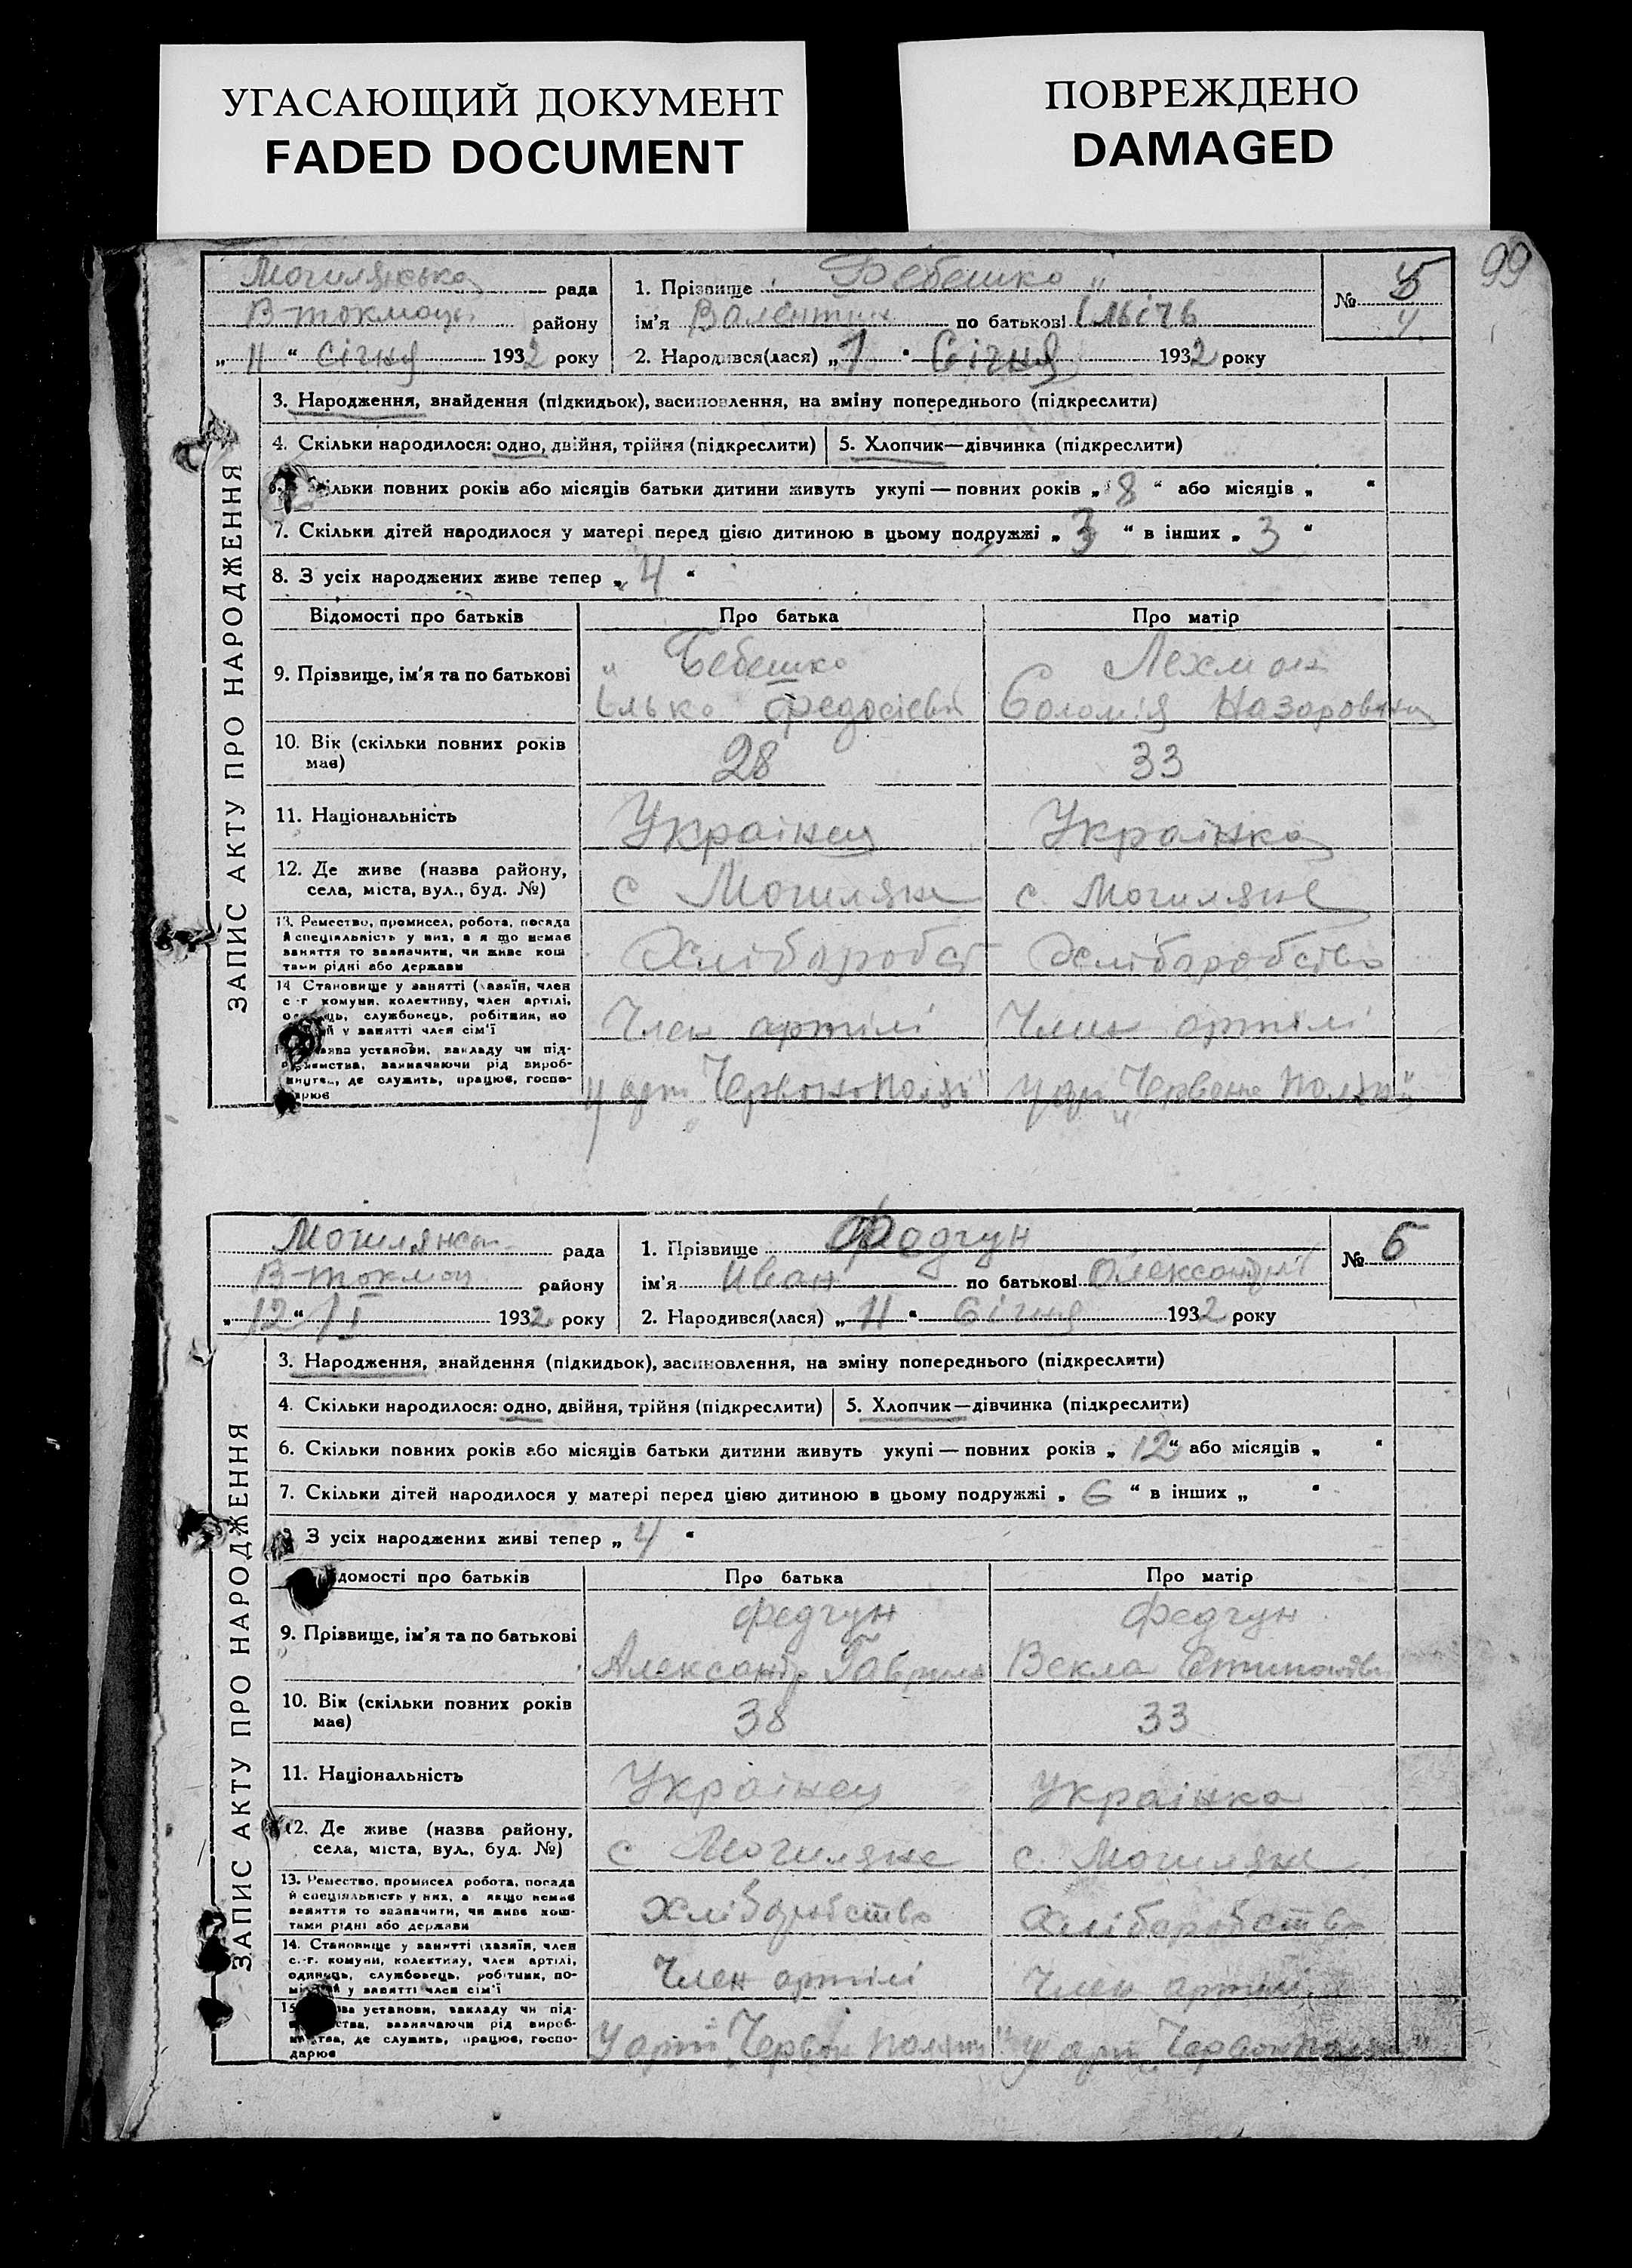 УГАСАЮЩИЙ ДОКУМЕНТ
FADED DOCUMENT
ПОВРЕЖДЕНО
DAMAGED
99
Могилянська рада
В-токмац. району
„ 11 “ Січня 1932 року
1. Прізвище Бебешко
ім'я Валентин по батькові Ільічь
2. Народився(лася) „ 1 “ Січня 1932 року
№ 5
4
ЗАПИС АКТУ ПРО НАРОДЖЕННЯ
3. Народження, знайдення (підкидьок), засиновлення, на зміну попереднього (підкреслити)
4. Скільки народилося: одно, двійня, трійня (підкреслити) 5. Хлопчик—дівчинка (підкреслити)
ільки повних років або місяців батьки дитини живуть укупі — повних років „ 8 “ або місяців „ “
7. Скільки дітей народилося у матері перед цією дитиною в цьому подружжі „ 3 “ в інших „ 3 “
8. З усіх народжених живе тепер „ 4 “
Відомості про батьків Про батька Про матір
9. Прізвище, ім'я та по батькові
Бебешко Лехман
Ілько Федосієв Соломія Назаровна
10. Вік (скільки повних років має) 28 33
11. Національність Украінец Украінка
12. Де живе (назва району,
села, міста, вул., буд. №) с Могиляне с. Могиляне
13. Ремество, промисел, робота, посада
й спеціяльність у них, а я що немає
заняття то зазначити, чи живе кош
тами рідні або держави
Хліборобст Хліборобство
14 Становище у занятті (хазяїн, член
с -г комуни, колективу, член артілі,
службовець, робітник, по
й у занятті член сім'ї
Член артілі Член артілі
зва установи, закладу чи під-
ємства, зазначаючи рід вироб-
ництва, де служить, працює, госпо-
дарює
у арт „Червоно Поляни“ у арт „Червоно Поляни“
Могилянсь. рада
В-токмац району
„ 12 “ I 1932 року
1. Прізвище Федчун
ім'я Иван по батькові Олександр
2. Народився(лася) „ 11 “ Січня 1932 року
№ 6
ЗАПИС АКТУ ПРО НАРОДЖЕННЯ
3. Народження, знайдення (підкидьок), засиновлення, на зміну попереднього (підкреслити)
4. Скільки народилося: одно, двійня, трійня (підкреслити) 5. Хлопчик—дівчинка (підкреслити)
6. Скільки повних років або місяців батьки дитини живуть укупі — повних років „ 12 “ або місяців „ “
7. Скільки дітей народилося у матері перед цією дитиною в цьому подружжі „ 6 “ в інших „ “
З усіх народжених живі тепер „ 4 “
домості про батьків Про батька Про матір
9. Прізвище, ім'я та по батькові
Федчун Федчун
Александр Гаврил Векла
10. Вік (скільки повних років має) 38 33
11. Національність Украінец Украінка
12. Де живе (назва району,
села, міста, вул., буд. №) с Могиляне с. Могиляне
13. Ремество, промисел робота, посада
й спеціяльність у них, а якщо немає
заняття то зазначити, чи живе кош-
тами рідні або держави
Хліборобство Хліборобство
14. Становище у занятті (хазяїн, член
с.-г. комуни, колективу, член артілі,
одинець, службовець, робітник, по-
у занятті член сім'ї
Член артілі Член артілі
15 ва установи, закладу чи під-
ства, зазначаючи рід вироб-
ництва, де служить, працює, госпо-
дарює
у арт „Червон Поляни“ у арт „Червон Поляни“